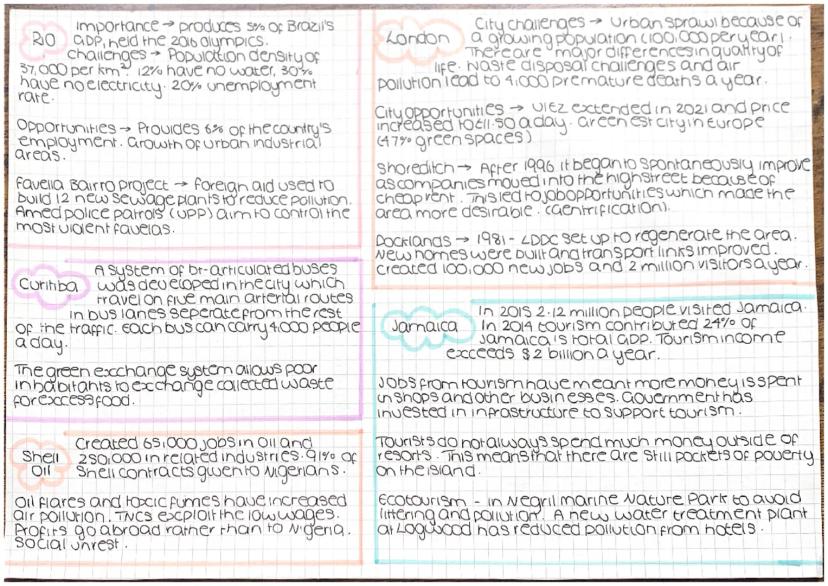 RIO
Importance → produces 5% of Brazil's
GDP, held the 2016 Olympics.
Challenges → Population density of
37,000 per km². 12% have no water, 30%
have no electricity. 20% unemployment
rate.
Opportunities → Provides 6% of the country's
employment. Growth of urban industrial
areas.
Favella Bairro project → foreign aid used to
build 12 new sewage plants to reduce pollution.
Amed police patrols (UPP) aim to control the
most violent favelas.
Curitiba
A system of bi-articulated buses
was developed in the city which
travel on five main arterial routes
in bus lanes seperate from the rest
of the traffic. Each bus can carry 4,000 people
a day.
The green exchange system allows poor
inhabitants to exchange collected waste
for excess food.
Shell
Oil
Created 65,000 jobs in Oil and
250,000 in related industries. 91% of
Shell contracts given to Nigerians.
Oil flares and toxic fumes have increased
air pollution. TNCs exploit the low wages.
Profits go abroad rather than to Nigeria.
Social unrest.
London
City challenges → Urban sprawl because of
a growing population (100,000 per year).
There are major differences in quality of
life. Waste disposal challenges and air
pollution lead to 4,000 premature deaths a year.
City opportunities → ULEZ extended in 2021 and price
increased to £11.50 a day. Greenest city in Europe
(47% green spaces)
Shoreditch → After 1996 it began to spontaneously improve
as companies moved into the highstreet because of
cheap rent. This led to job opportunities which made the
area more desirable. (Gentrification).
Docklands → 1981 - LDDC set up to regenerate the area.
New homes were built and transport links improved.
Created 100,000 new jobs and 2 million visitors a year.
Jamaica
In 2015 2.12 million people visited Jamaica.
In 2014 tourism contributed 24% of
Jamaica's total GDP. Tourism income
exceeds $2 billion a year.
Jobs from tourism have meant more money is spent
in shops and other businesses. Government has
invested in infrastructure to support tourism.
Tourists do not always spend much money outside of
resorts. This means that there are still pockets of poverty
on the island.
Ecotourism - in Negril marine Nature Park to avoid
littering and pollution. A new water treatment plant
at Logwood has reduced pollution from hotels.